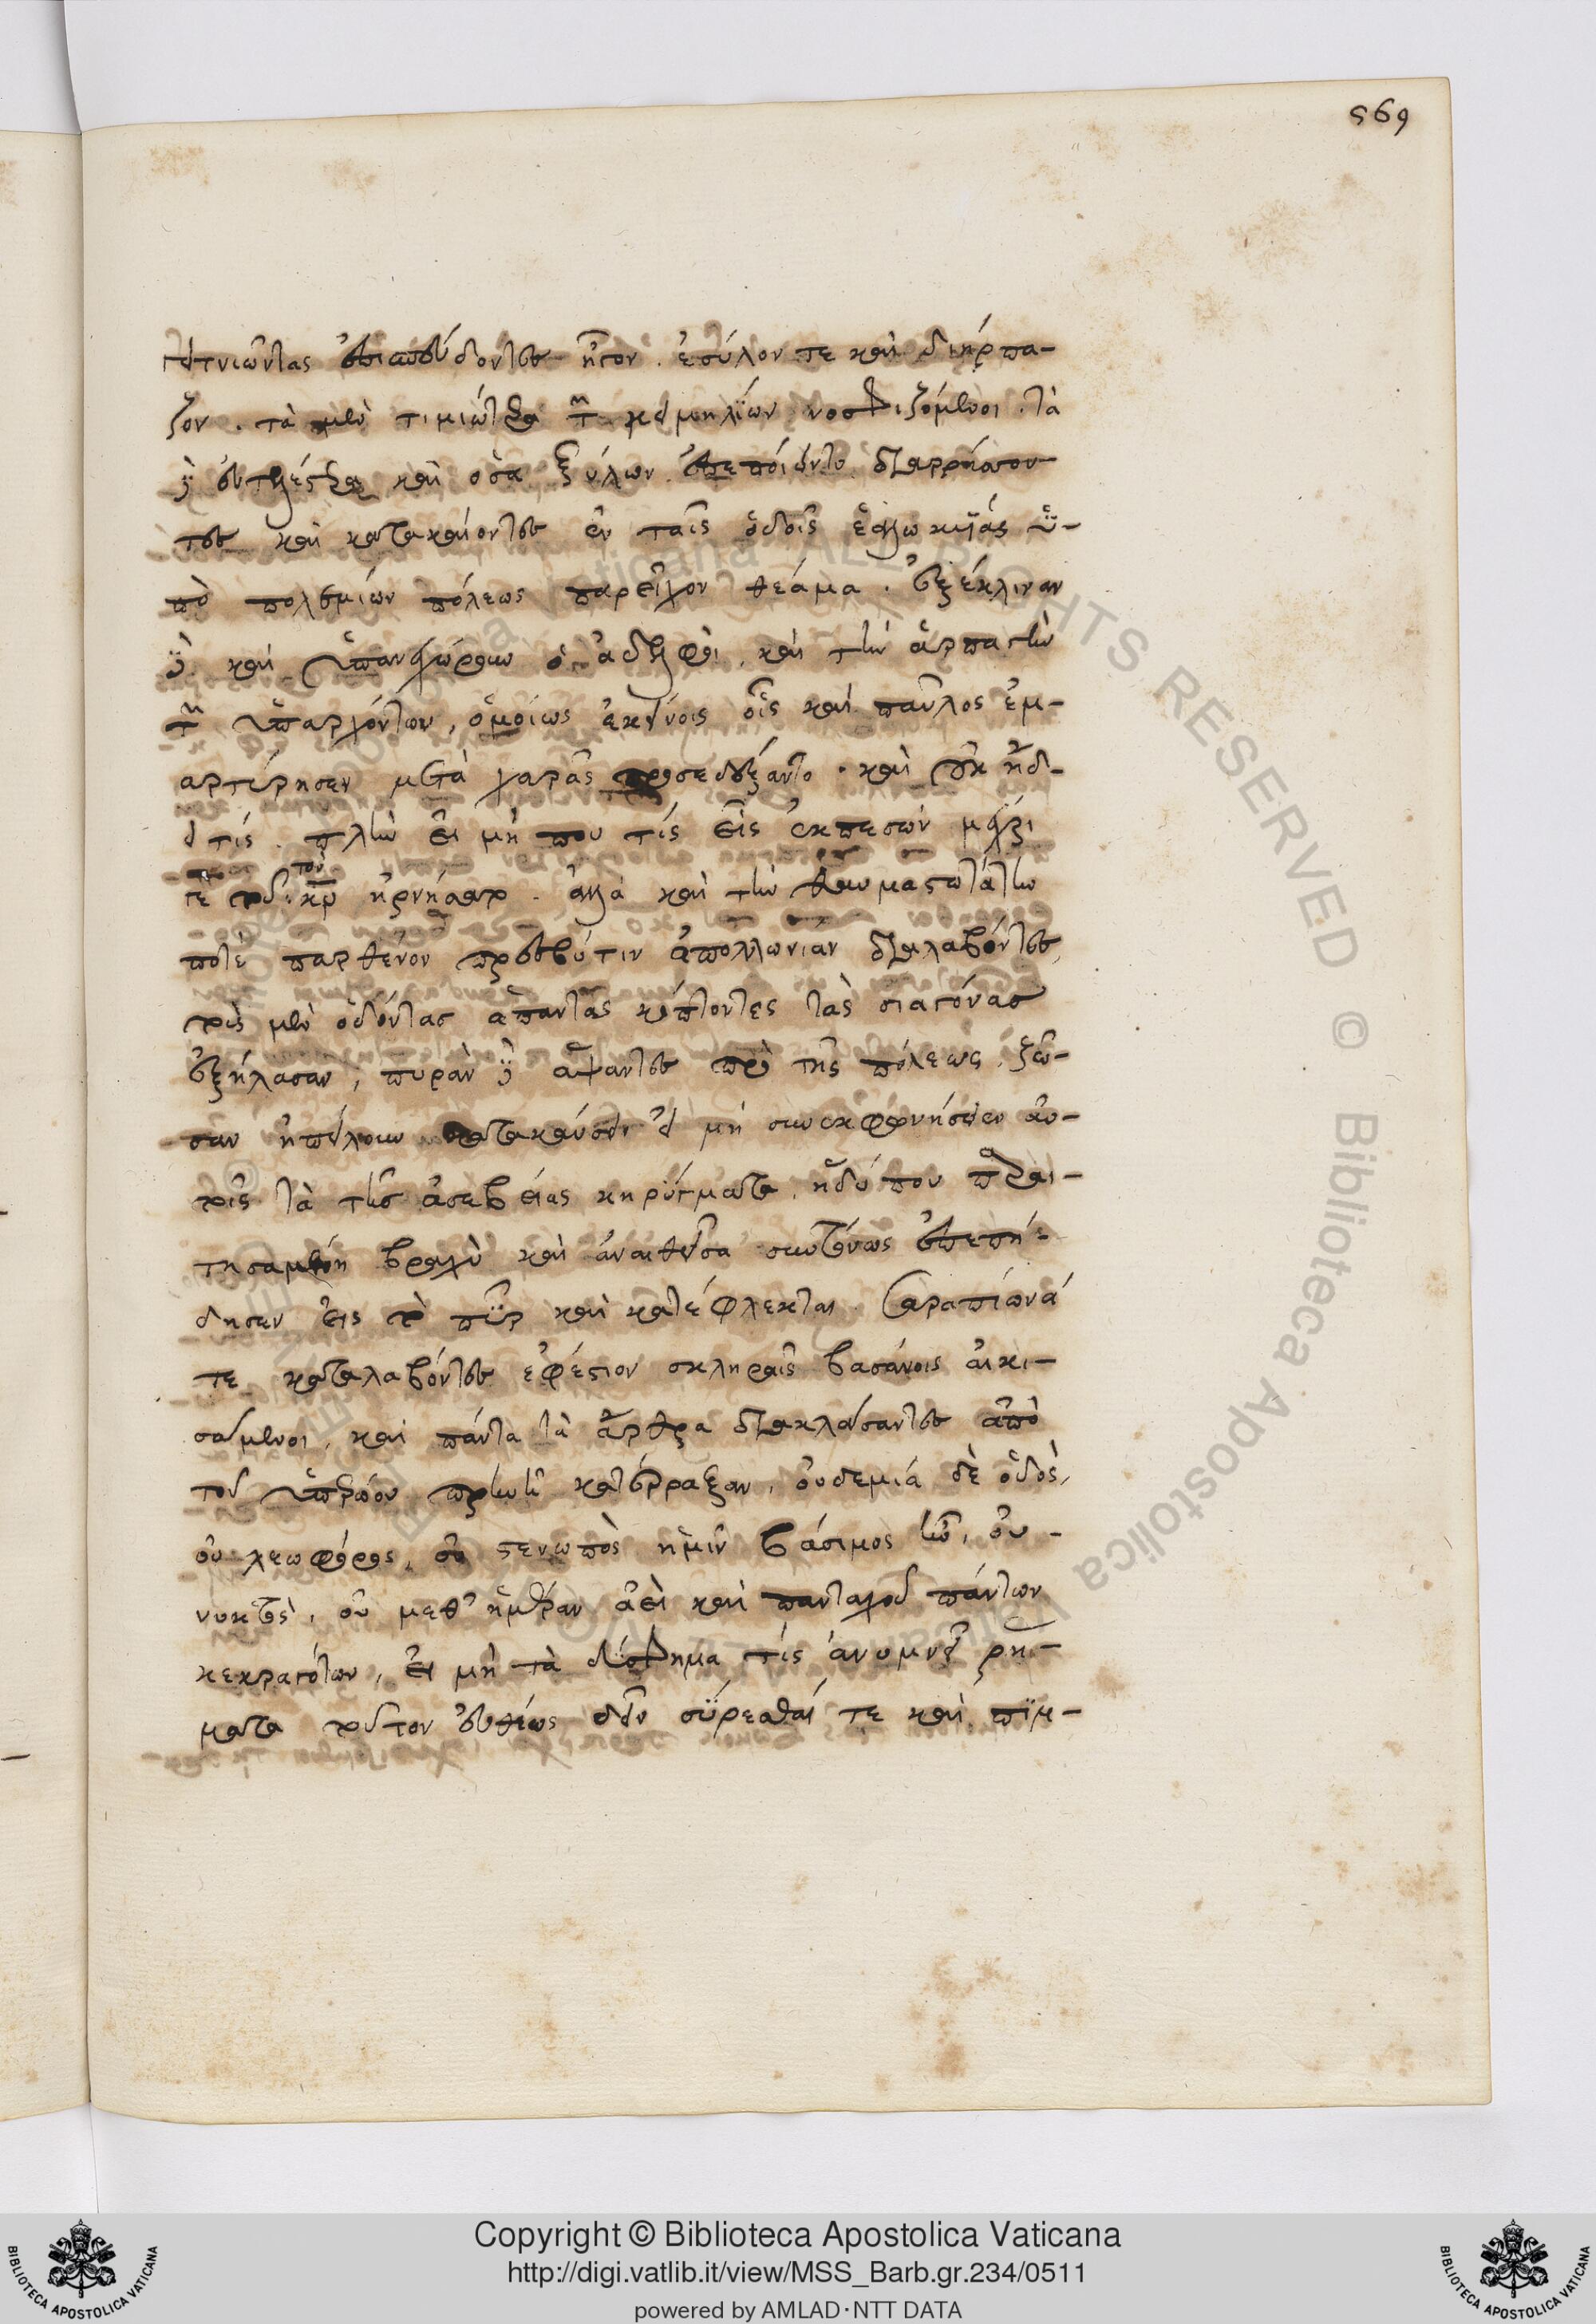 569
γειτνιῶντας ἐπισπεύδοντες ἦγον. ἐσύλον τε καὶ διήρπα-
ζον. τὰ μὲν τιμιώτερα τῶν κειμηλίων νοσφιζόμενοι. τὰ
δὲ εὐτελέστερα καὶ ὅσα ξύλων ἐπεποίηντο διαρρήπτουν-
τες καὶ κατακαίοντες ἐν ταῖς ὁδοῖς ἑαλωκυίας ὑ-
πὸ πολεμίων πόλεως παρεῖχον θέαμα. ἐξέκλιναν
δὲ καὶ ὑπανεχώρουν οἱ ἀδελφοὶ, καὶ τὴν ἁρπαγὴν
τῶν ὑπαρχόντων, ὁμοίως ἐκείνοις οἷς καὶ παῦλος ἐμ-
αρτύρησεν μετὰ χαρᾶς προσεδέξαντο. καὶ οὐκ οἶδ-
εἴ τις. πλὴν εἰ μή που τίς εἷς ἐκπεσών μέχρι
γε τούτου τὸν κν ἠρνήσατο. ἀλλὰ καὶ τὴν θαυμασιωτάτην
ποτὲ παρθένον πρεσβύτιν ἀπολλωνίαν διαλαβόντες,
τοὺς μὲν ὀδόντας ἅπαντας κόπτοντες τὰς σιαγόνας
ἐξήλασαν, πυρὰν δὲ ἅψαντες πρὸ τῆς πόλεως, ζῶ-
σαν ἠπείλουν κατακαύσειν εἰ μὴ συνεκφωνήσειεν αὐ-
τοῖς τὰ τῆς ἀσεβείας κηρύγματα. ἡ δύ που παραι-
τησαμένη βραχὺ καὶ ἀναιθεῖσα συντόνως ἐπεπή-
δησεν εἰς τὸ πῦρ καὶ κατέφλεκται. Σαραπίωνά
τε καταλαβόντες ἐφέστιον σκληραῖς βασάνοις αἰκι-
σάμενοι, καὶ πάντα τὰ ἄρθρα διακλάσαντες ἀπὸ
τοῦ ὑπερώου πρηνῆ κατέρραξαν, οὐδεμιά δὲ ὁδὸς,
οὐ λεωφόρος, οὐ στενωπὸς ἡμῖν βάσιμος ἦν, οὐ-
νυκτὸς, οὐ μεθ' ἡμέραν ἀεὶ καὶ πανταχοῦ πάντων
κεκραγότων, εἰ μὴ τὰ δύσφημα τίς ἀνυμνοῖ ῥή-
ματα τοῦτον εὐθέως δεῖν σύρεσθαί τε καὶ πίμ-
Copyright © Biblioteca Apostolica Vaticana
http://digi.vatlib.it/view/MSS_Barb.gr.234/0511
powered by AMLAD·NTT DATA
BIBLIOTECA APOSTOLICA VATICANA
BIBLIOTECA APOSTOLICA VATICANA